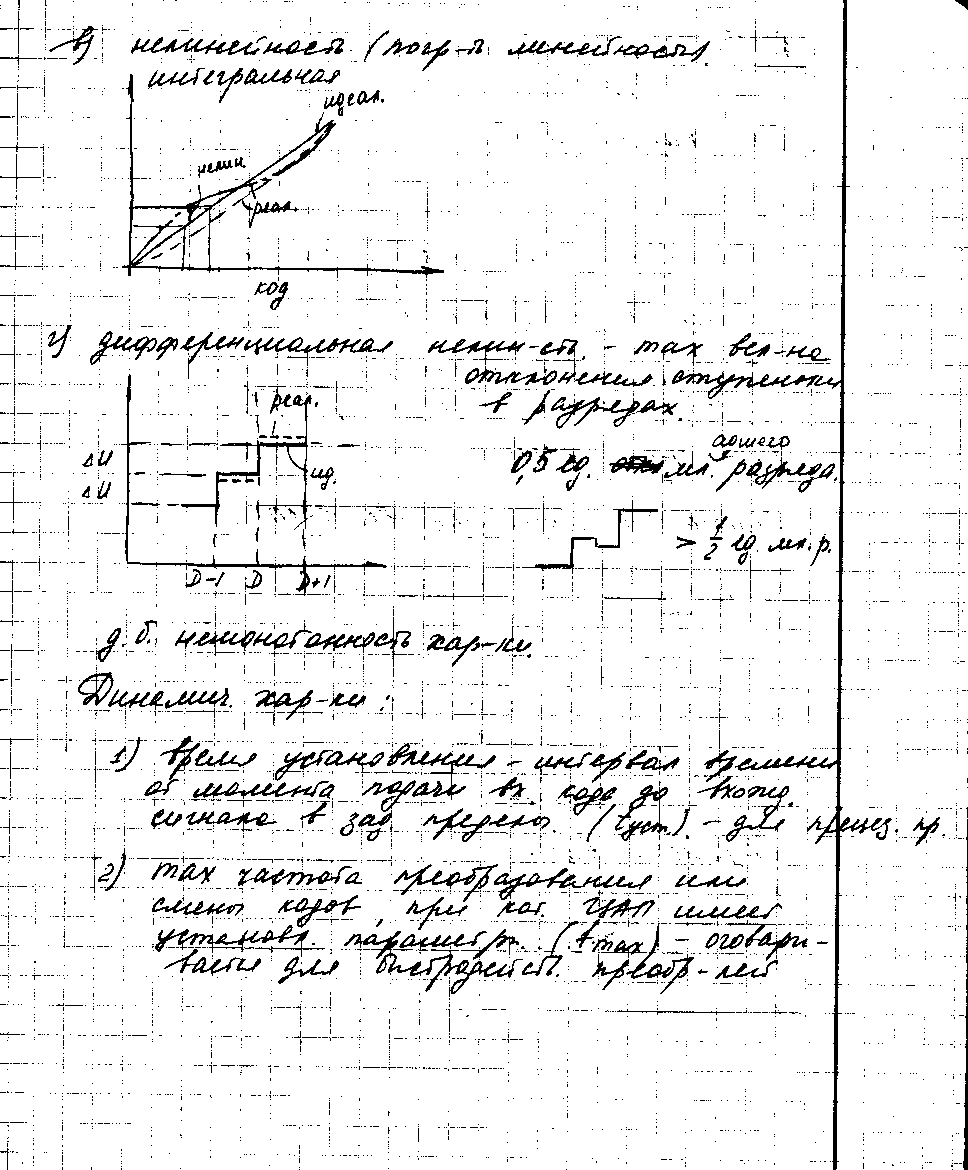 в) нелинейность (погр-ть линейности).
интегральная
идеал.
нелин.
реал.
код
г) дифференциальная нелин-сть. - max вел-на
отклонения ступеньки
в разрядах.
реал.
ΔU
ид.
ΔU
адшего
0,5 ед. мл. разряда.
> 1/2 ед. мл. р.
D-1 D D+1
д.б. немонотонность хар-ки.
Динамич. хар-ки:
1) время установления - интервал времени
от момента подачи вх. кода до вхожд.
сигнала в зад. пределы. (tуст) - для прециз. пр.
2) max частота преобразования или
смены кодов, при кот. ЦАП имеет
установл. параметры. (fmax) - оговари-
вается для быстродейств. преобр-лей